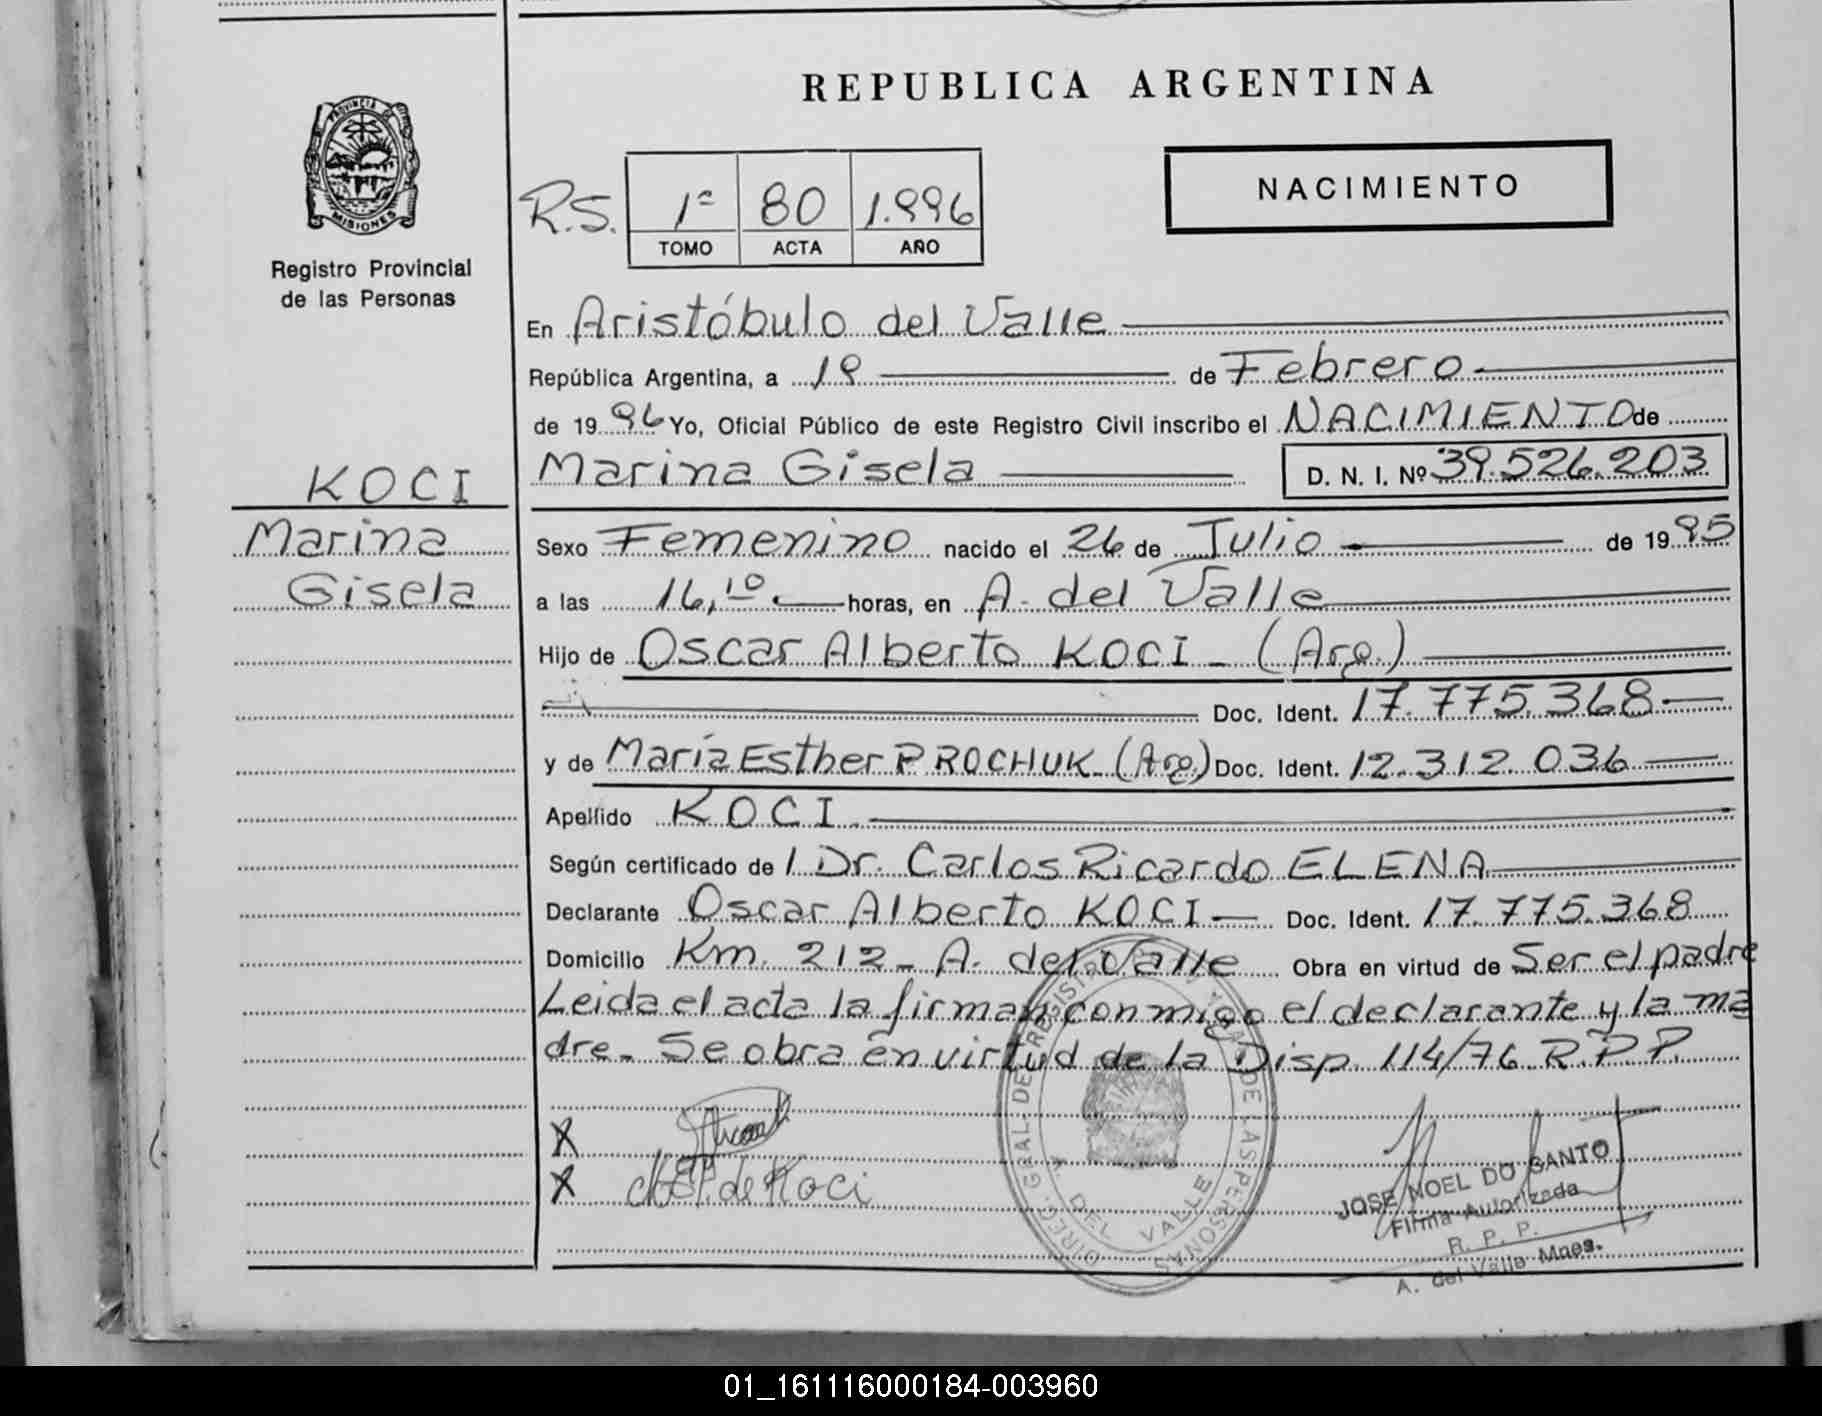 REPUBLICA ARGENTINA
PROVINCIA DE
MISIONES
Registro Provincial
de las Personas
R.S. 1º 80 1.996
TOMO ACTA AÑO
NACIMIENTO
En Aristóbulo del Valle
República Argentina, a 19 de Febrero
de 19 96 Yo, Oficial Público de este Registro Civil inscribo el NACIMIENTO de
KOCI
Marina
Gisela
Marina Gisela D. N. I. Nº 39.526.203
Sexo Femenino nacido el 26 de Julio de 19 95
a las 16,10 horas, en A. del Valle
Hijo de Oscar Alberto KOCI - (Arg.)
Doc. Ident. 17.775.368
y de María Esther PROCHUK - (Arg.) Doc. Ident. 12.312.036
Apellido KOCI
Según certificado de 1 Dr. Carlos Ricardo ELENA
Declarante Oscar Alberto KOCI - Doc. Ident. 17.775.368
Domicilio Km. 212 - A. del Valle Obra en virtud de Ser el padre
Leida el acta la firman conmigo el declarante y la ma
dre. Se obra en virtud de la Disp. 114/76 R.P.P.
X
X M.E.P. de Koci
DIREC. GRAL. DEL REGISTRO DE LAS PERSONAS
A. DEL VALLE
JOSE NOEL DO SANTO
Firma Autorizada
R. P. P.
A. del Valle Mnes.
01_161116000184-003960